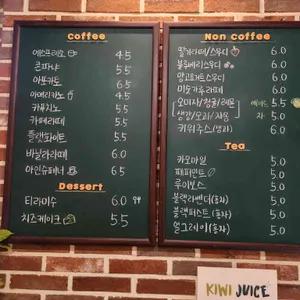 Coffee
에스프레소 4.5
콘파냐 5.5
아포카토 6.5
아메리카노 4.5
카푸치노 5.5
카페라떼 5.5
플랫화이트 5.5
바닐라라떼 6.0
아인슈페너 6.5
Dessert
티라미수 6.0
치즈케이크 5.5
Non Coffee
딸기라떼/스무디 6.0
블루베리스무디 6.0
망고요거트스무디 6.0
미숫가루라떼 6.0
오미자/청귤/레몬 에이드 5.5
생강/오미자/자몽 차 5.0
키위쥬스(생과) 6.0
Tea
카모마일 5.0
페퍼민트 5.0
루이보스 5.0
블랙라벤더(홍차) 5.0
블랙퍼스트(홍차) 5.0
얼그레이(홍차) 5.0
KIWI JUICE